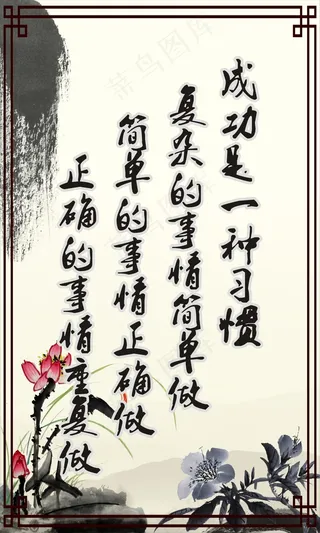 成功是一种习惯
复杂的事情简单做
简单的事情正确做
正确的事情重复做
菜鸟图库